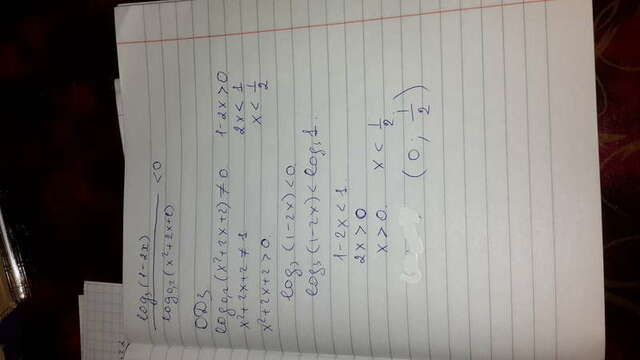 log₃(1-2x)
log₀,₂(x²+2x+2) < 0
ОДЗ
log₀,₂(x²+2x+2) ≠ 0 1-2x>0
x²+2x+2 ≠ 1 2x<1
x²+2x+2>0 x<1/2
log₃(1-2x)<0
log₃(1-2x)<log₃1.
1-2x<1
2x>0
x>0. x<1/2
(0; 1/2)